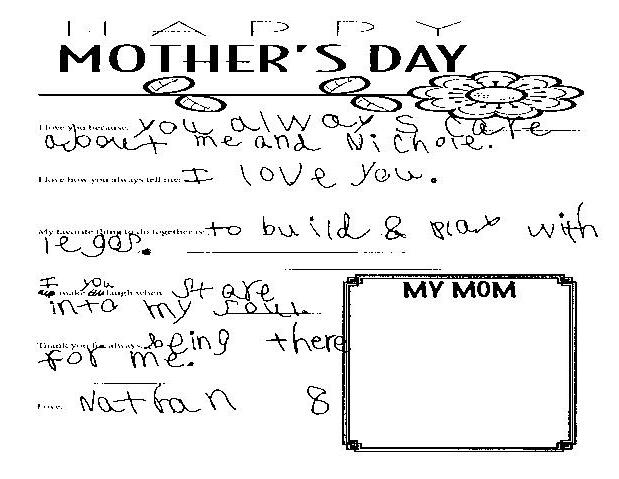 HAPPY
MOTHER'S DAY
I love you because: you always care
about me and Nichole.
I love how you always tell me: I love you.
My favorite thing to do together is: to build & play with
legos.
I make you laugh when stare
into my soul.
Thank you for always being there
for me.
Love, Nathan 8
MY MOM